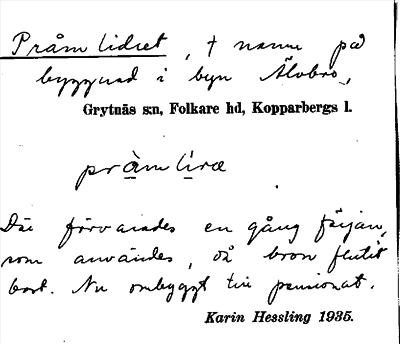 Pråmlidret, † namn på
byggnad i byn Älvbro,
Grytnäs s:n, Folkare hd, Kopparbergs l.
pràmliræ
Där förvarades en gång färjan,
som användes, då bron flutit
bort. Nu ombyggt till pensionat.
Karin Hessling 1935.